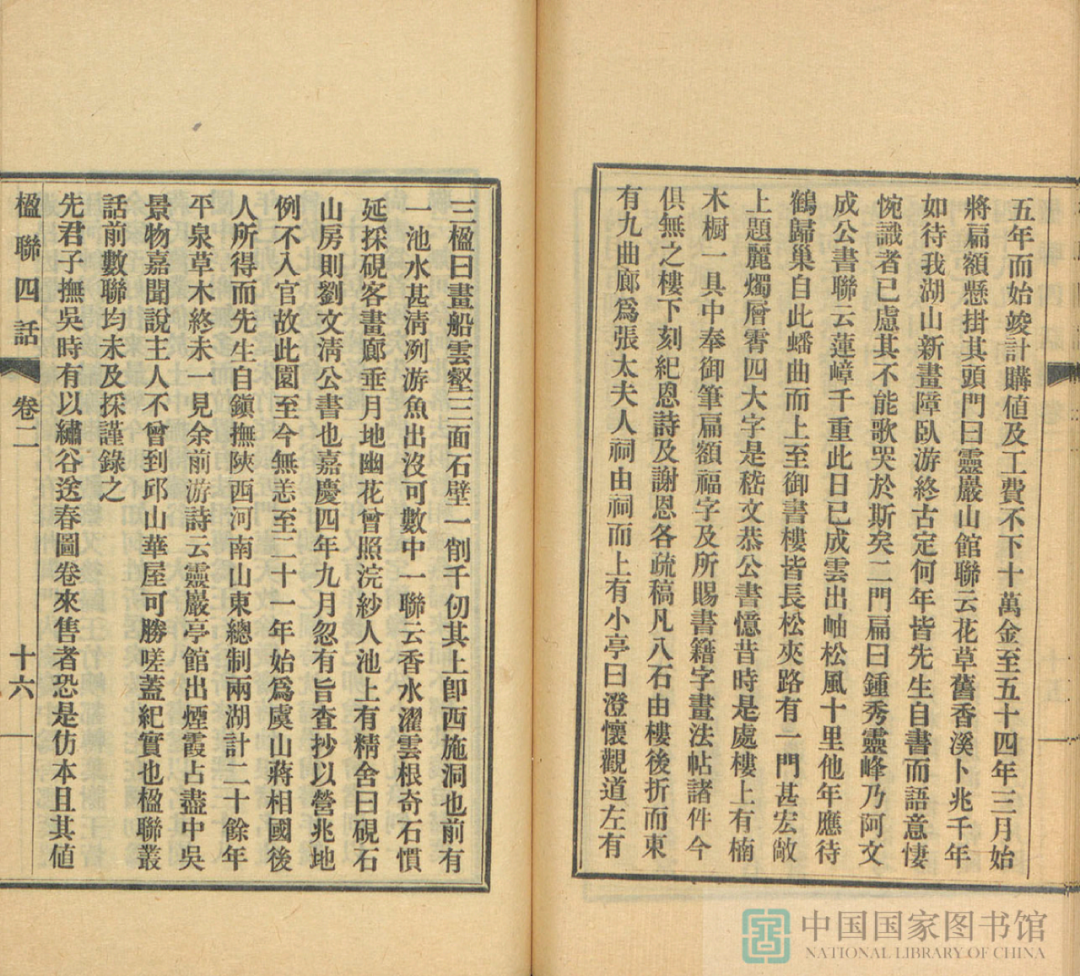 五年而始竣計購値及工費不下十萬金至五十四年三月始
將扁額懸掛其頭門曰靈巖山館聯云花草舊香溪卜兆千年
如待我湖山新畫障臥游終古定何年皆先生自書而語意悽
惋識者已慮其不能歌哭於斯矣二門扁曰鍾秀靈峰乃阿文
成公書聯云蓮嶂千重此日已成雲出岫松風十里他年應待
鶴歸巢自此蟠曲而上至御書樓皆長松夾路有一門甚宏敞
上題麗燭層霄四大字是嵇文恭公書憶昔時是處樓上有楠
木櫥一具中奉御筆扁額福字及所賜書籍字畫法帖諸件今
俱無之樓下刻紀恩詩及謝恩各疏稿凡八石由樓後折而東
有九曲廊爲張太夫人祠由祠而上有小亭曰澄懷觀道左有
三楹曰畫船雲壑三面石壁一削千仞其上卽西施洞也前有
一池水甚清冽游魚出沒可數中一聯云香水濯雲根奇石慣
延採硯客畫廊垂月地幽花曾照浣紗人池上有精舍曰硯石
山房則劉文清公書也嘉慶四年九月忽有旨查抄以營兆地
例不入官故此園至今無恙至二十一年始爲虞山蔣相國後
人所得而先生自鎭撫陝西河南山東總制兩湖計二十餘年
平泉草木終未一見余前游詩云靈巖亭館出煙霞占盡中吳
景物嘉聞說主人不曾到邱山華屋可勝嗟蓋紀實也楹聯叢
話前數聯均未及採謹錄之
先君子撫吳時有以繡谷送春圖卷來售者恐是仿本且其値
楹聯四話 卷二 十六
中国国家图书馆
NATIONAL LIBRARY OF CHINA